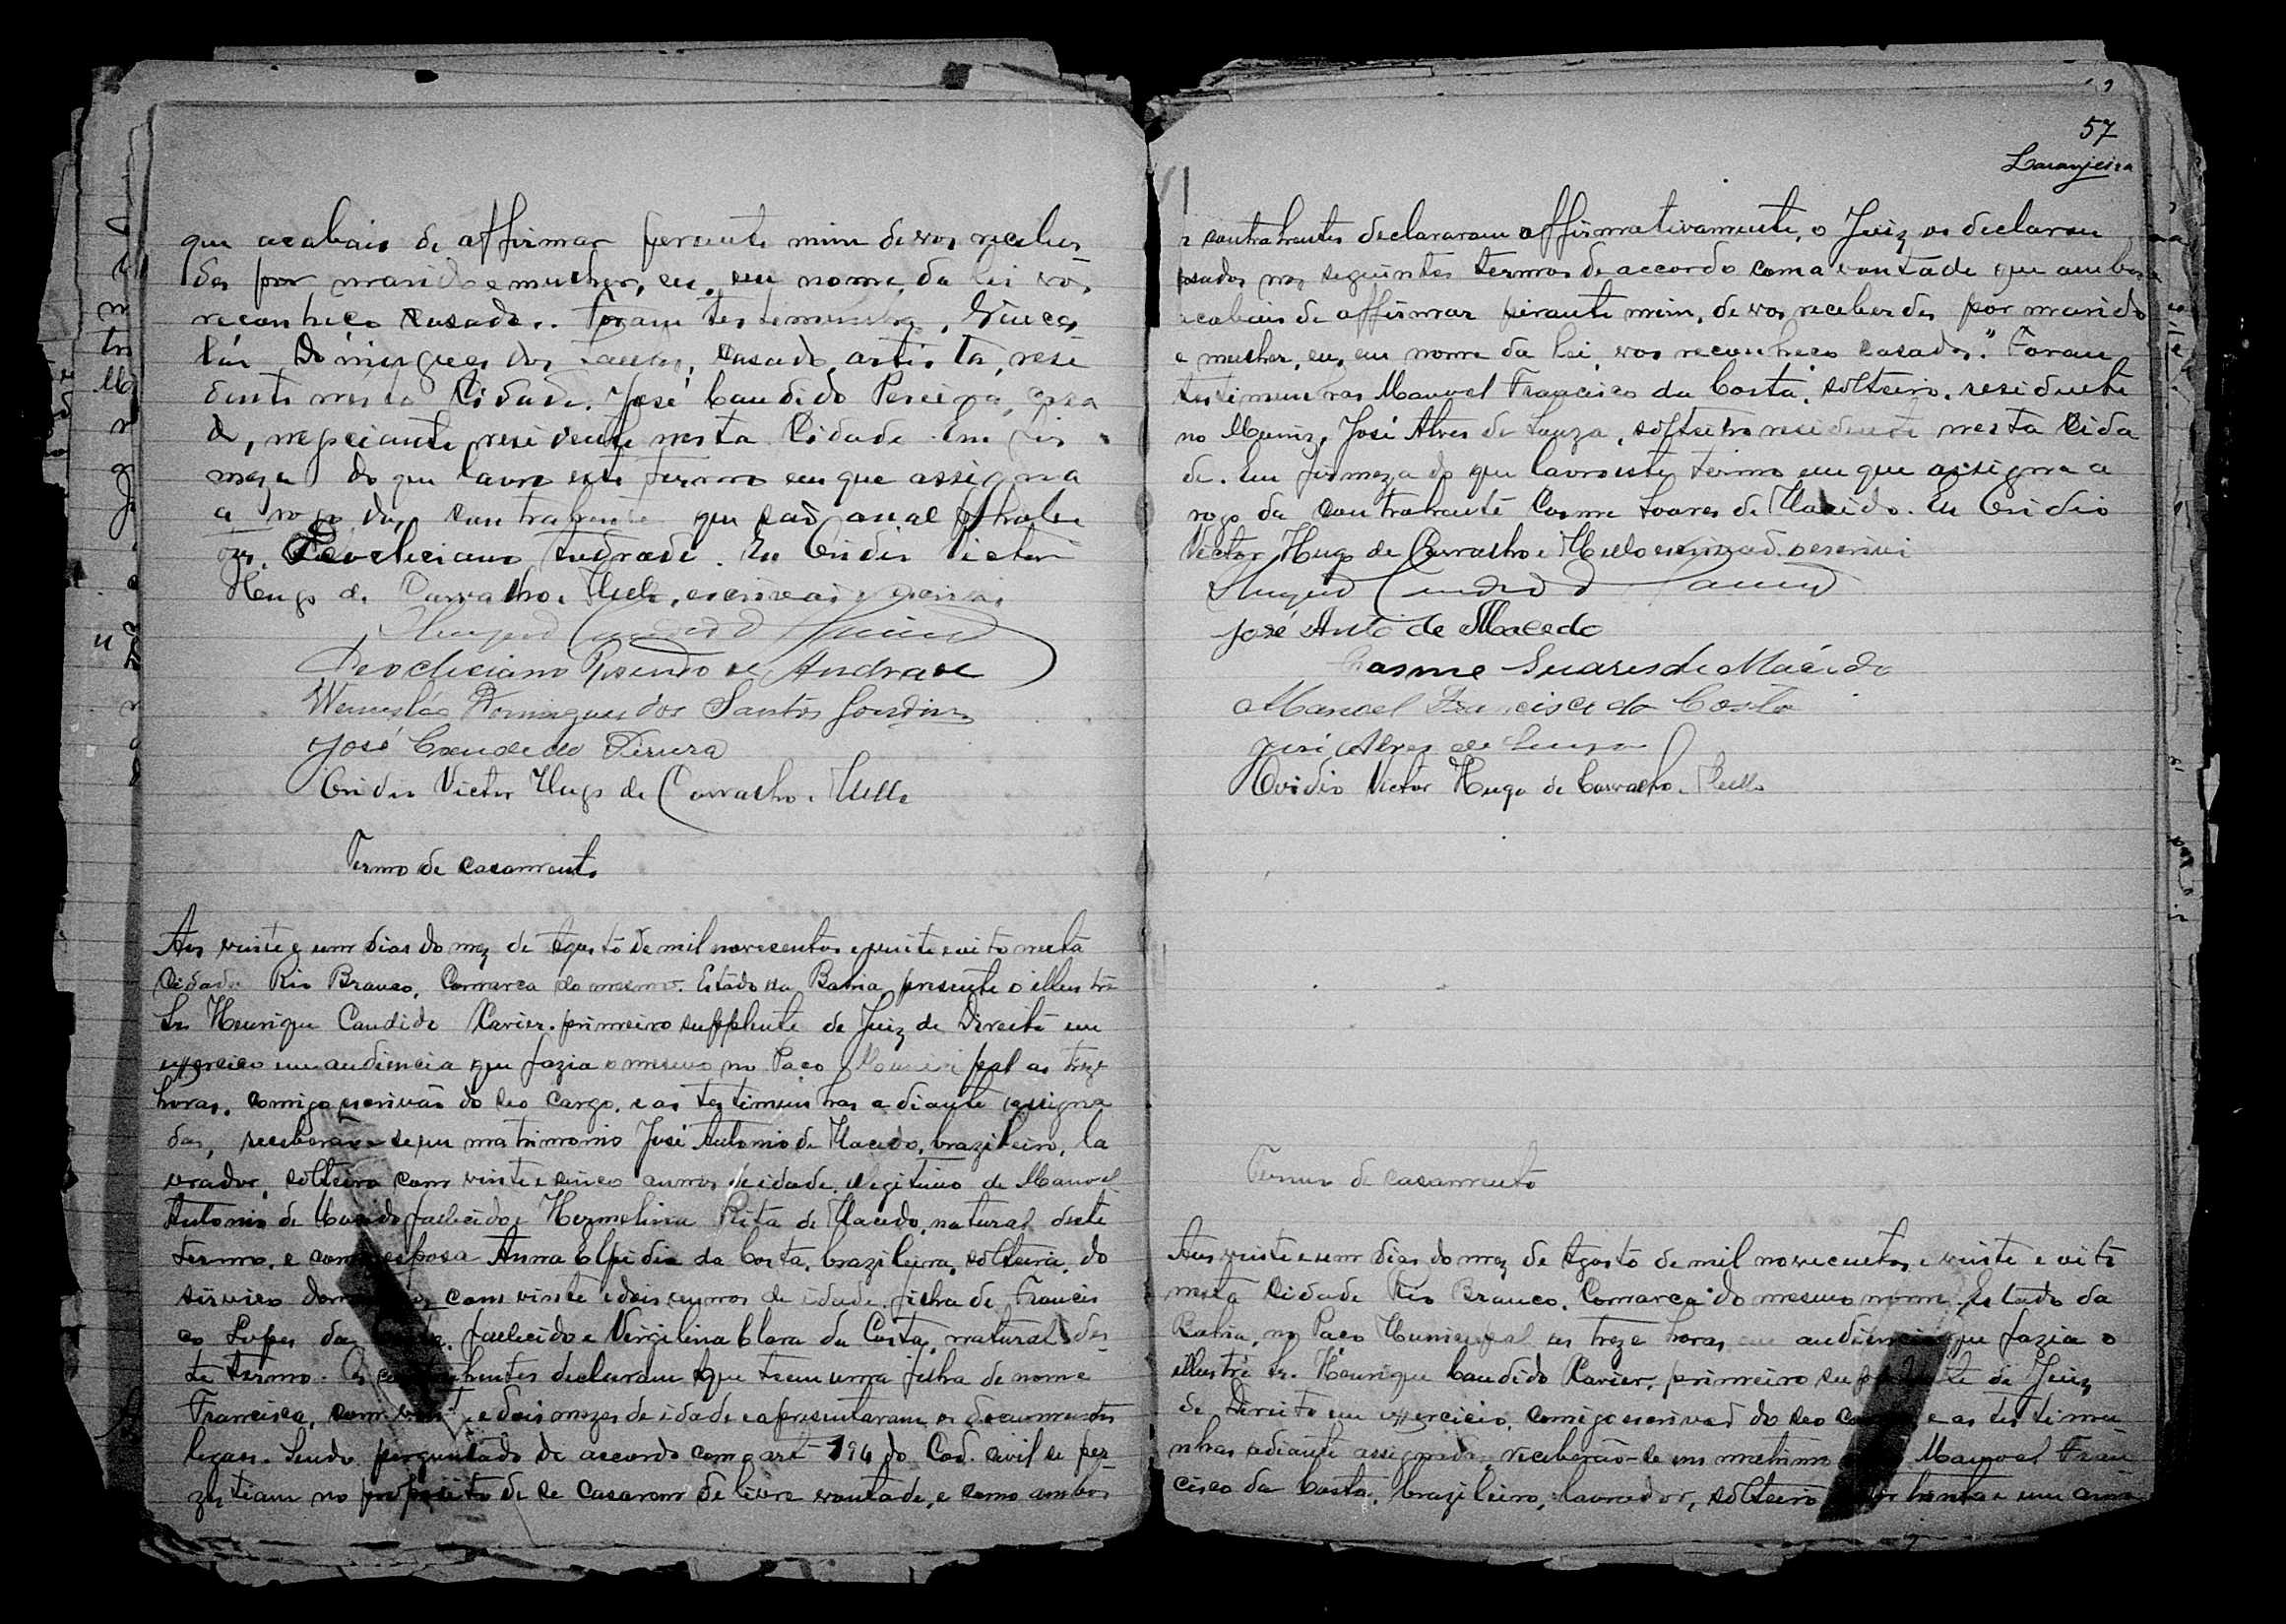 que acabais de affirmar perante mim de vos receber
des por marido e mulher, eu, em nome da lei vos
reconheço casados. Foram testemunhas, Vences
láu Domingues dos Santos, casado, artista, resi
dente nesta Cidade. José Candido Pereira, casa
do, negociante, residente nesta Cidade. Em fir
meza do que lavro este termo em que assigna
a rogo dos contrahentes que são analphabe
tos, Deocliciano Andrade. Eu Ovidio Victor
Hugo de Carvalho e Mello, escrivão o escrivi
Henrique Candido Xavier
Deocliciano Rosendo de Andrade
Wenesláo Domingues dos Santos
José Candido Pereira
Ovidio Victor Hugo de Carvalho e Mello
Termo de casamento
Aos vinte e um dias do mez de Agosto de mil novecentos e vinte e oito nesta
Cidade Rio Branco, Comarca do mesmo. Estado da Bahia presente o illustre
Sr. Henrique Candido Xavier. primeiro supplente de Juiz de Direito em
exercicio em audiencia que fazia o mesmo no Paço Municipal as treze
horas. comigo escrivão do seo cargo. e as testimunhas adiante assigna
das, receberão-se em matrimonio José Antonio de Macedo, brazileiro, la
vrador, solteiro com vinte e cinco annos de idade. legitimo de Manoel
Antonio de Macedo fallecido e Hermelina Rita de Macedo, natural deste
termo. e com esposa Anna Elpidia da Costa, brazileira, solteira, do
serviço com vinte e dois annos de idade, filha de Francis
co Lopes da fallecido e Virgilina Clara da Costa, natural des
te termo. Os declaram que tem uma filha de nome
Francisca, com e dois mezes de idade e apresentaram os documentos
legaes. Sendo perguntado de accordo com o art 194 do Cod. civil se per
zistiam no proposito de se casarem de livre vontade, e como ambos
57
Laranjeira
contrahentes declararam affirmativamente, o Juiz os declarou
casados nos seguintes termos de accordo com a vontade que ambos
acabais de affirmar perante mim, de vos receberdes por marido
e mulher, eu, em nome da lei, vos reconheço casados." Foram
testimunhas Manoel Francisco da Costa, solteiro, residente
no Muniz, José Alves de Souza, solteiro residente nesta Cida
de. Em firmeza do que lavro este termo em que assigna a
rogo da contrahente Cosme Soares de Macedo. Eu Ovidio
Victor Hugo de Carvalho e Mello escrivão o escrivi
Henrique Candido Xavier
José Anto de Macedo
Cosme Suares de Macêdo
Manoel Francisco da Costa
José Alves de Souza
Ovidio Victor Hugo de Carvalho e Mello
Termo de casamento
Aos vinte e um dias do mez de Agosto de mil novecentos e vinte e oito
nesta Cidade Rio Branco, Comarca do mesmo nome, Estado da
Bahia, no Paço Municipal as treze horas em audiencia que fazia o
illustre Sr. Henrique Candido Xavier, primeiro supplente de Juiz
de Direito em exercicio, comigo escrivão do seo cargo e as testimu
nhas adiante assignadas, receberão-se em matrimo Manoel Fran
cisco da Costa, brazileiro, lavrador, solteiro trinta e um anno